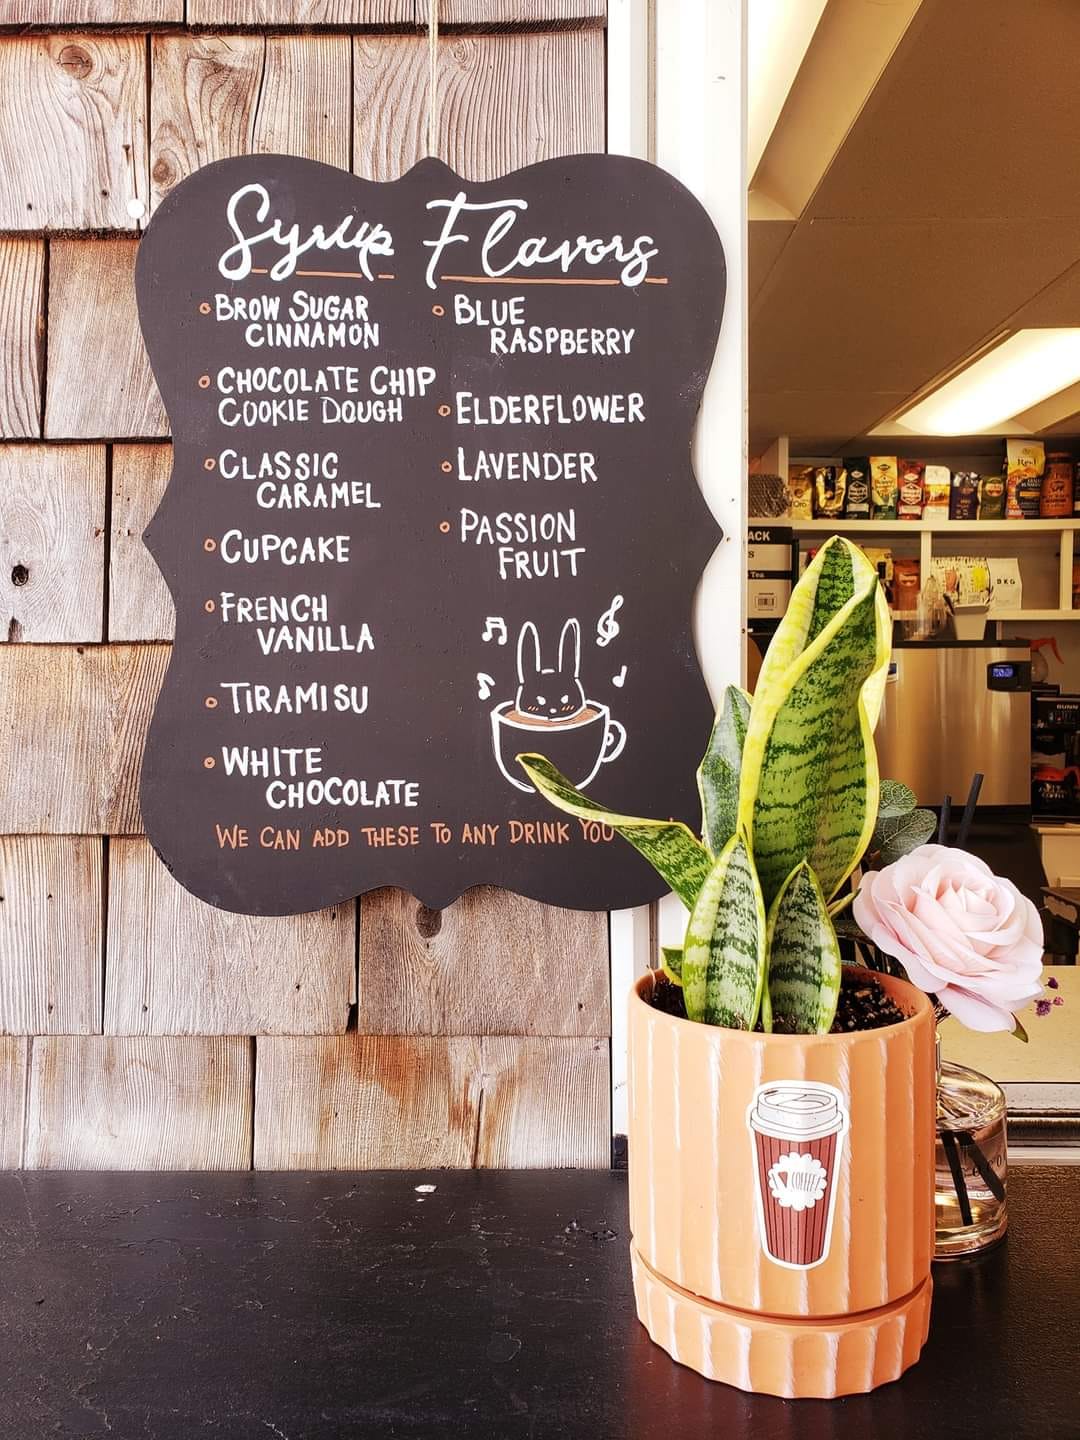 Syrup Flavors
BROW SUGAR
CINNAMON
CHOCOLATE CHIP
COOKIE DOUGH
CLASSIC
CARAMEL
CUPCAKE
FRENCH
VANILLA
TIRAMISU
WHITE
CHOCOLATE
BLUE
RASPBERRY
ELDERFLOWER
LAVENDER
PASSION
FRUIT
WE CAN ADD THESE TO ANY DRINK YOU
I COFFEE
BKG
Tea
BUNN